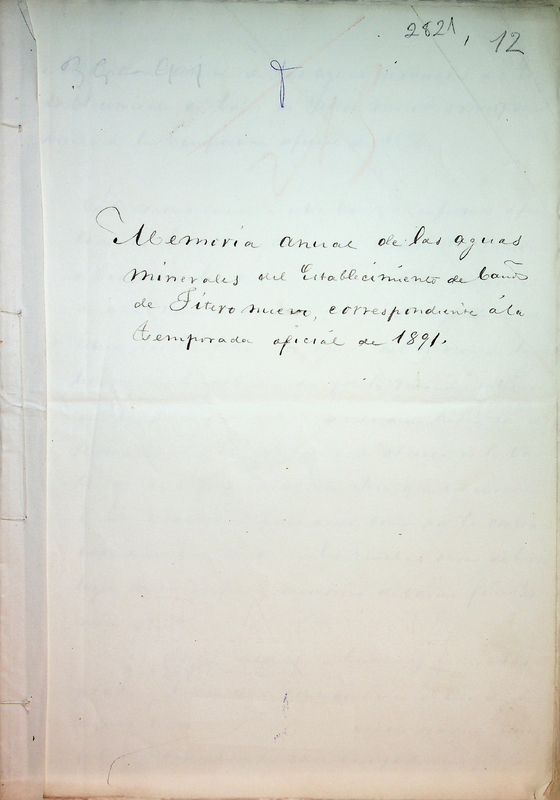 2821, 12
Memoria anual de las aguas
minerales del Establecimiento de baños
de Fitero nuevo, correspondiente á la
temporada oficial de 1891.